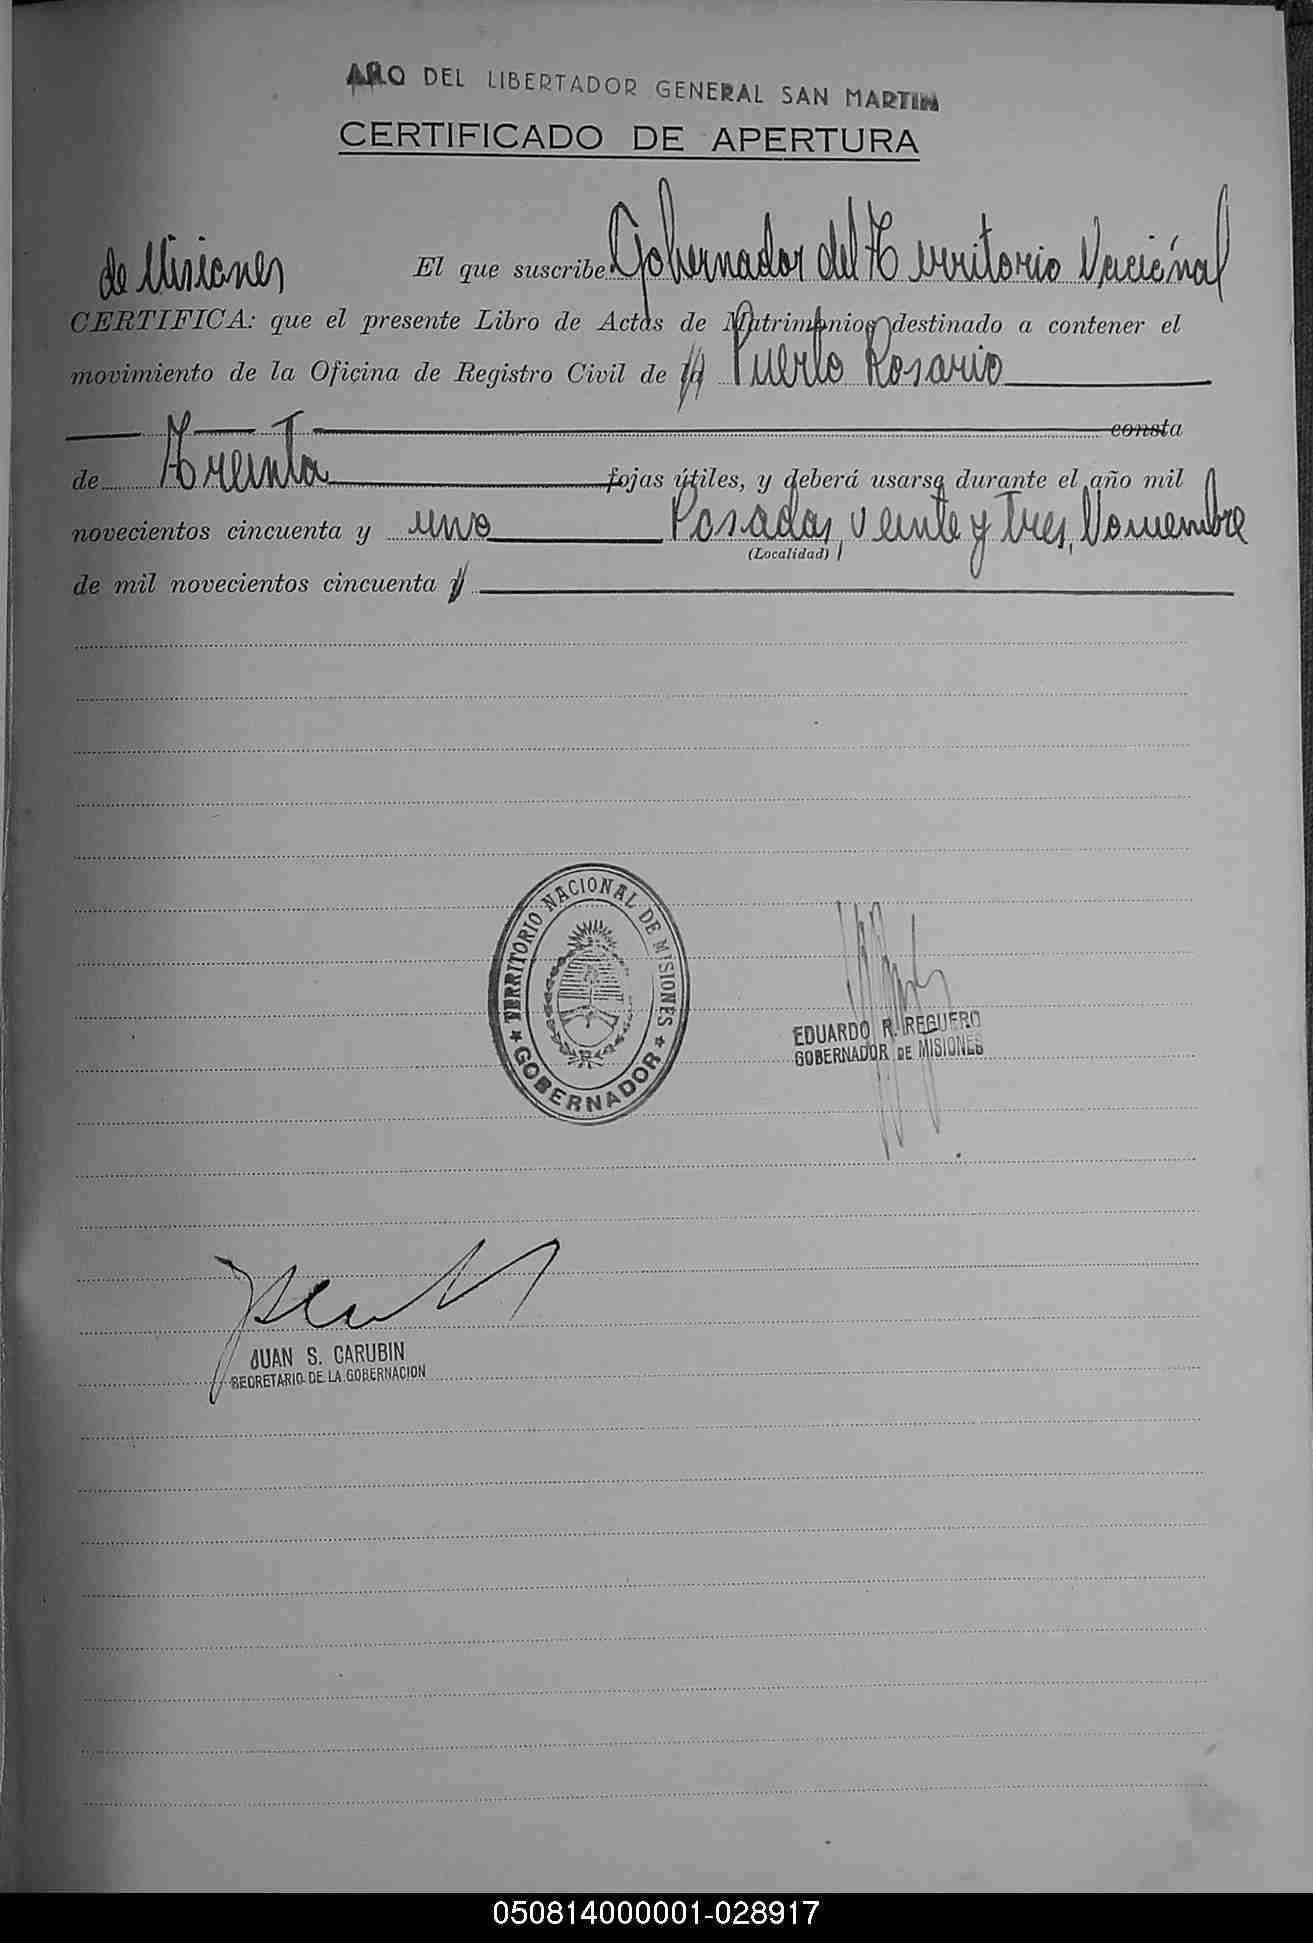 AÑO DEL LIBERTADOR GENERAL SAN MARTIN
CERTIFICADO DE APERTURA
El que suscribe Gobernador del Territorio Nacional
de Misiones
CERTIFICA: que el presente Libro de Actas de Matrimonios destinado a contener el
movimiento de la Oficina de Registro Civil de Puerto Rosario
consta
de Treinta fojas útiles, y deberá usarse durante el año mil
novecientos cincuenta y uno Posadas, veinte y tres, Noviembre
(Localidad)
de mil novecientos cincuenta y
TERRITORIO NACIONAL DE MISIONES
★ GOBERNADOR ★
EDUARDO R. REGUERO
GOBERNADOR DE MISIONES
JUAN S. CARUBIN
SECRETARIO DE LA GOBERNACION
050814000001-028917